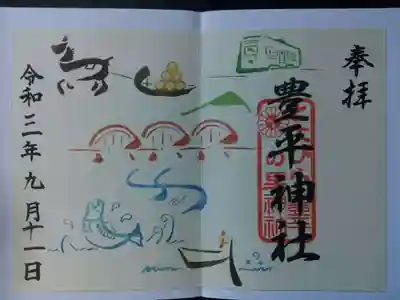 奉拝
豊平神社
令和三年九月十一日